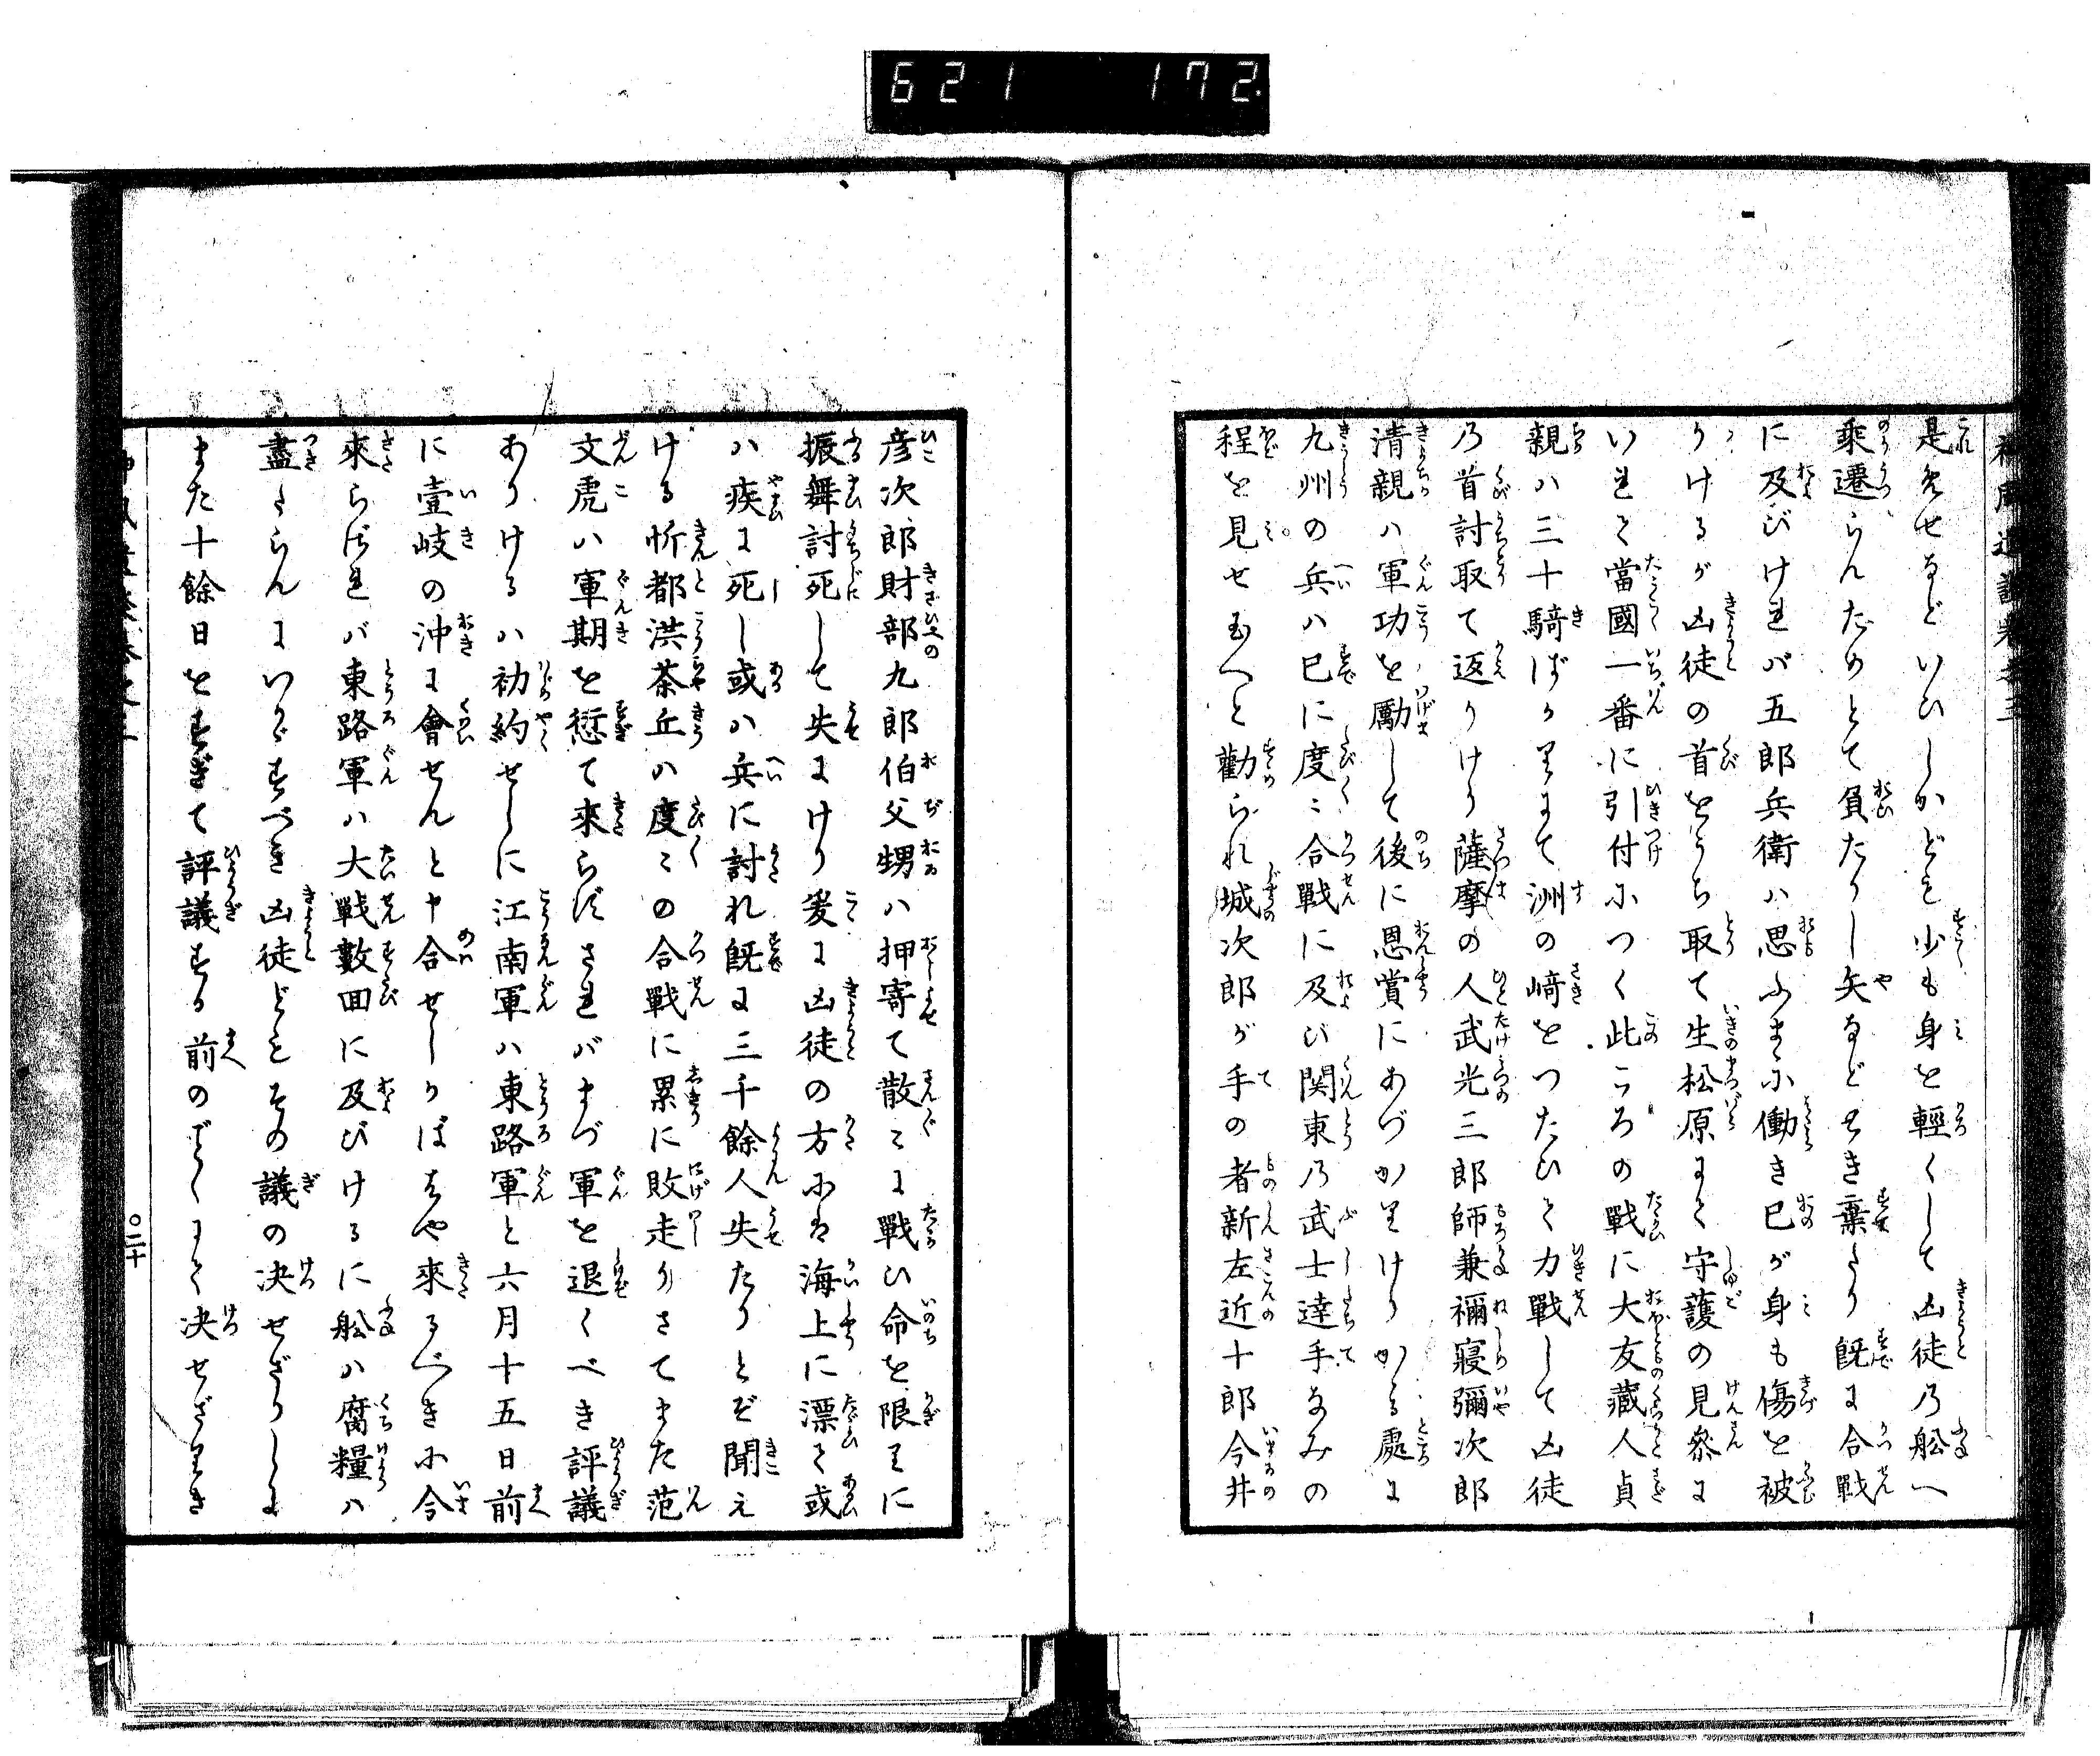 621 172
是見せなどいひしかども少も身を輕くして凶徒乃舩へ
乘遷らんためとて負たりし矢などもき棄たり既に合戰
に及びければ五郎兵衛ハ思ふまゝに働き已が身も傷を被
りけるが凶徒の首をうち取て生松原にて守護の見參に
いれて當國一番に引付につく此ころの戰に大友藏人貞
親ハ三十騎ばかりにて洲の﨑をつたひて力戰して凶徒
乃首討取て返りけり薩摩の人武光三郎師兼禰寢彌次郎
清親ハ軍功を勵して後に恩賞にあづかりけりかゝる處に
九州の兵ハ已に度〻合戰に及び関東乃武士達手なみの
程を見せ玉へと勸られ城次郎が手の者新左近十郎今井
彦次郎財部九郎伯父甥ハ押寄て散〻に戰ひ命を限りに
振舞討死して失にけり爰に凶徒の方にも海上に漂て或
ハ疾に死し或ハ兵に討れ既に三千餘人失たりとぞ聞え
ける忻都洪茶丘ハ度〻の合戰に累に敗走りさてまた范
文虎ハ軍期を愆て來らずさればまづ軍を退くべき評議
ありけるハ初約せしに江南軍ハ東路軍と六月十五日前
に壹岐の沖に會せんと申合せしかばはや來るべきに今
來らざれバ東路軍ハ大戰數回に及びけるに舩ハ腐糧ハ
盡たらんにいかゞすべき凶徒どもその議の决せざりしに
また十餘日をすぎて評議する前のごとくにて决せざりき
〇二十